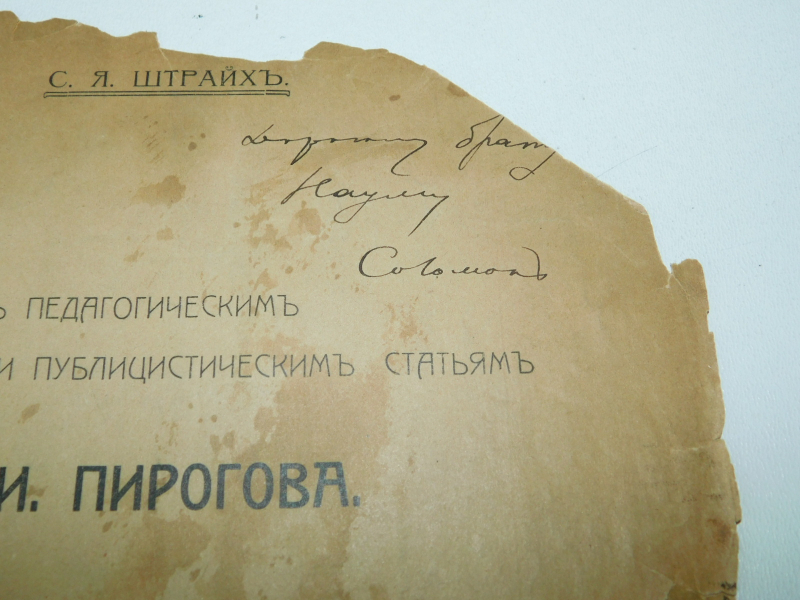 С. Я. ШТРАЙХЪ.
Дорогому брату
Науму
Соломонъ
Ъ ПЕДАГОГИЧЕСКИМЪ
И ПУБЛИЦИСТИЧЕСКИМЪ СТАТЬЯМЪ
И. ПИРОГОВА.